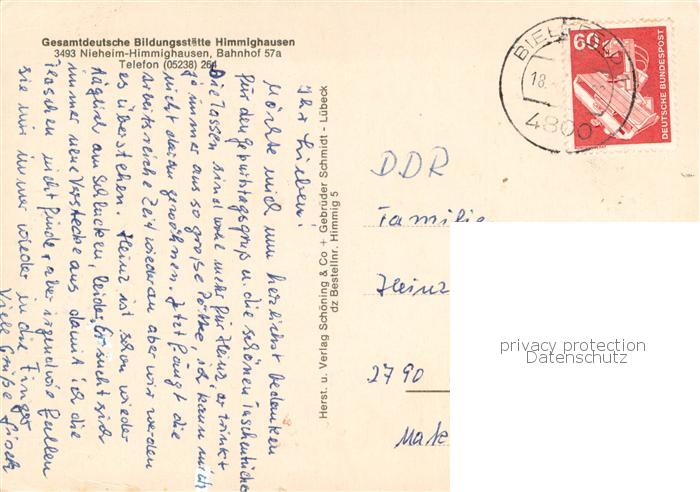 Gesamtdeutsche Bildungsstätte Himmighausen
3493 Nieheim-Himmighausen, Bahnhof 57a
Telefon (05238) 264
Ihr Lieben!
Möchte mich nun herzlichst bedanken
für den Geburtstagsgruß u. die schönen Taschentücher
Die Tassen sind wohl mehr für Heinz, er trinkt
ja immer aus so große Pötte, ich kann mich
nicht daran gewöhnen. Jetzt fängt die
arbeitsreiche Zeit wieder an aber wir werden
es überstehen. Heinz ist schon wieder
täglich am Schlucken, leider. Er sucht sich
immer neue Verstecke aus damit ich die
Flaschen nicht finde, aber irgendwie fallen
sie mir immer wieder in die Finger
Viele Grüße
Herst. u. Verlag Schöning & Co + Gebrüder Schmidt - Lübeck
dz Bestellnr. Himmig 5
BIELEFELD 1
18.
4800
60
DEUTSCHE BUNDESPOST
DDR
Familie
Heinz
2790
privacy protection
Datenschutz